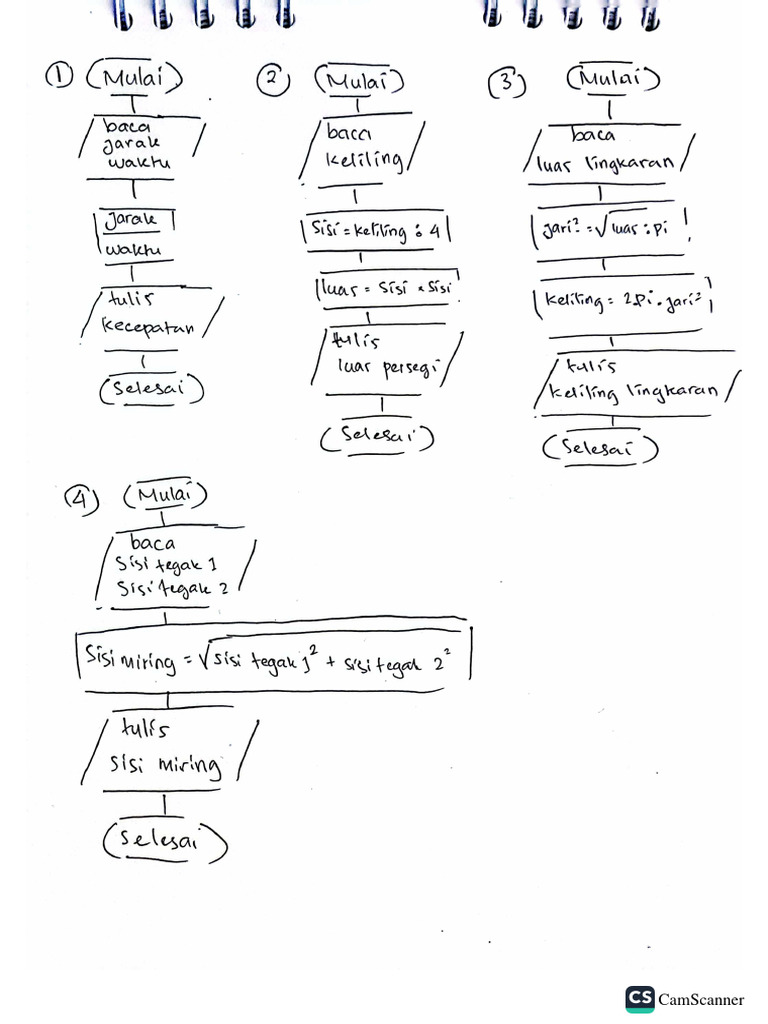 1 Mulai
baca
jarak
waktu
jarak
waktu
tulis
kecepatan
Selesai
2 Mulai
baca
keliling
Sisi = keliling : 4
luar = sisi × sisi
tulis
luar persegi
Selesai
3 Mulai
baca
luar lingkaran
jari² = √luar : pi
keliling = 2pi . jari²
tulis
keliling lingkaran
Selesai
4 Mulai
baca
Sisi tegak 1
Sisi tegak 2
Sisi miring = √sisi tegak 1² + sisi tegak 2²
tulis
sisi miring
Selesai
CS CamScanner